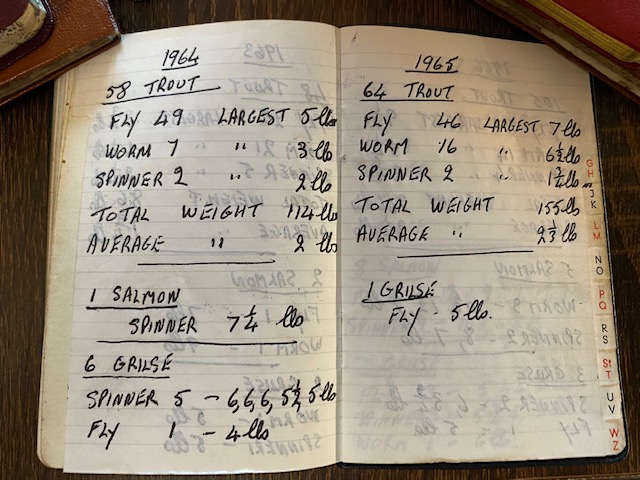 1964
58 TROUT
FLY 49 LARGEST 5 lbs
WORM 7 " 3 lbs
SPINNER 2 " 2 lbs
TOTAL WEIGHT 114 lbs
AVERAGE " 2 lbs
1 SALMON
SPINNER 7 1/4 lbs
6 GRILSE
SPINNER 5 - 6, 6, 6, 5 1/2, 5 lbs
FLY 1 - 4 lbs
1965
64 TROUT
FLY 46 LARGEST 7 lbs
WORM 16 " 6 1/2 lbs
SPINNER 2 " 1 3/4 lbs
TOTAL WEIGHT 155 lbs
AVERAGE " 2 1/3 lbs
1 GRILSE
FLY - 5 lbs.
G
H
J
K
L
M
N O
P
Q
R S
St
T
U
V
W
Z